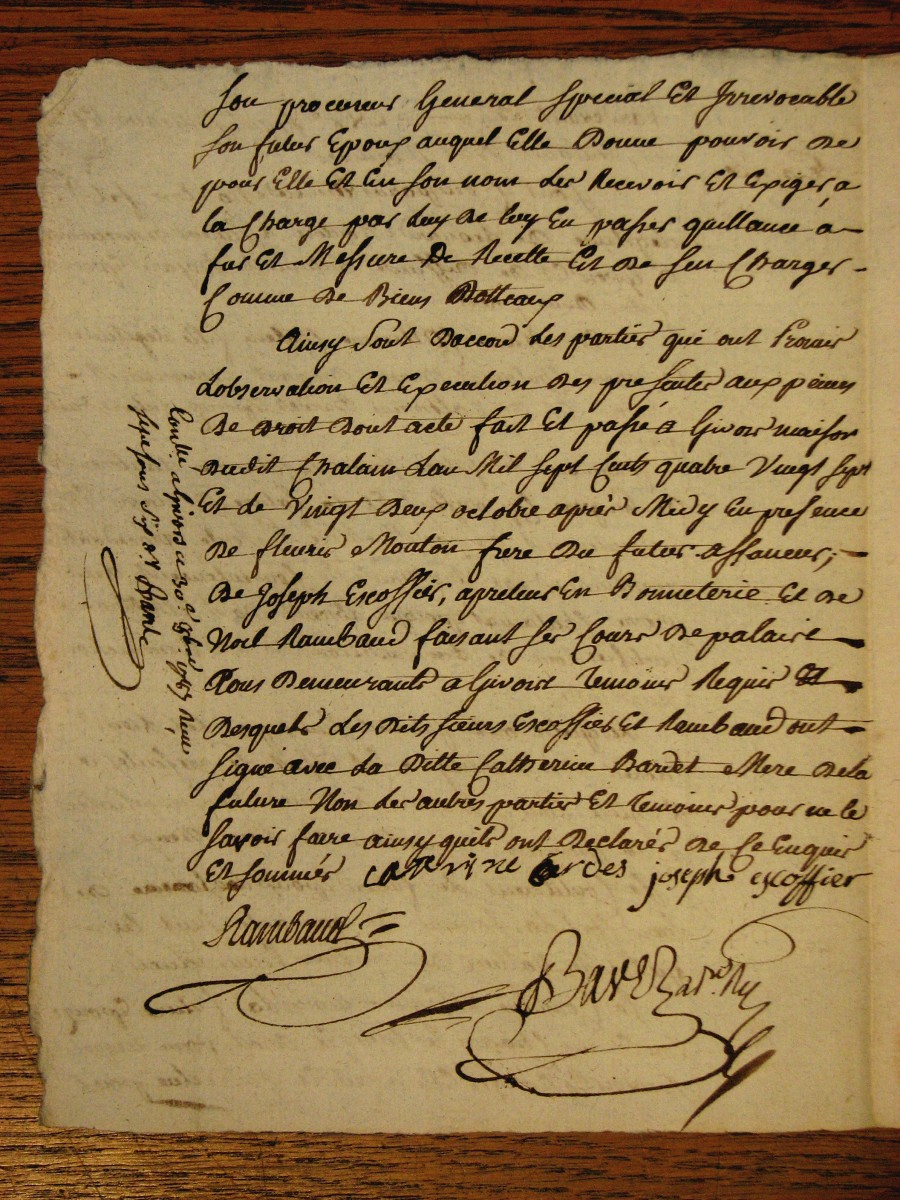 son procureur General Special Et Irrevocable
son futur Epoux auquel Elle Donne pouvoir De
pour Elle Et En son nom Les Recevoir Et Exiger a
la Charge par Luy De Luy En passer quittance a
fur Et Messure De Recette Et De s'en Charger
Comme De Biens Dotteaux
Ainsy sont Daccord Les parties qui ont Promis
Lobservation Et Execution Des presentes aux peines
De Droit Dont acte fait Et passé a Givors maison
Dudit Chalain Lan Mil Sept Cents quatre Vingt Sept
Et Le Vingt Deux octobre après Midy En presence
De fleuris Mouton frere Du futur
De Joseph Escoffier, apreteur En Bonneterie Et De
Noel Rambaud faisant ses Cours De palais
Tous Demeurants a Givors Temoins Requis
Desquels Les Dits sieurs Escoffier Et Rambaud ont
signé avec La Ditte Catherine Bardet Mere De la
future Non Les autres parties Et Temoins pour ne le
savoir faire ainsy quils ont Declarés De Ce Enquis
Et sommés catterine ardes joseph escoffier
Rambaud
Conllé a Givors ce 30e 8bre 1787 Reçu